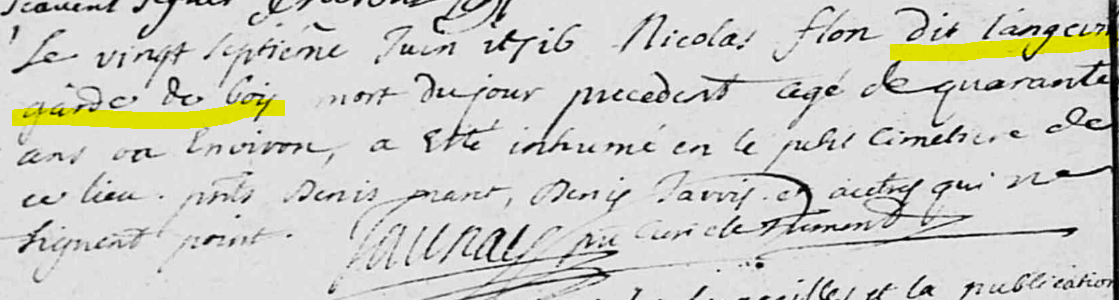 scavent signer
Le vingt septiéme Juin 1716 Nicolas flon dit langevin
garde de bois mort du jour precedent agé de quarante
ans ou Environ, a Esté inhumé en le petit Cimetiere de
ce lieu. pnts Denis Denis et autres qui ne
signent point. Launay ptre Curé de
et la publication